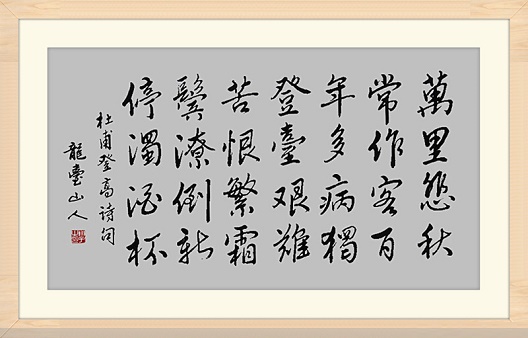 萬里悲秋
常作客百
年多病獨
登臺艱難
苦恨繁霜
鬢潦倒新
停濁酒杯
杜甫登高诗句
龍臺山人